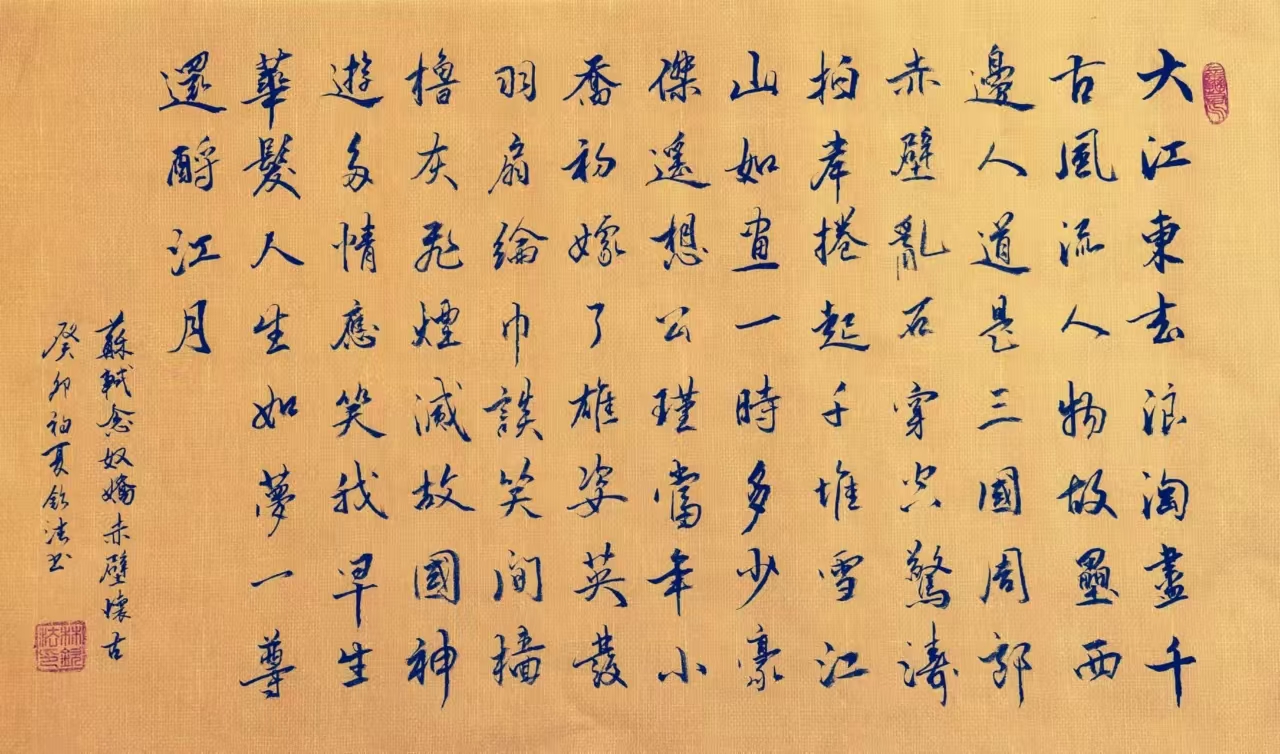 大江東去浪淘盡千
古風流人物故壘西
邊人道是三國周郎
赤壁亂石穿空驚濤
拍岸捲起千堆雪江
山如畫一時多少豪
傑遙想公瑾當年小
喬初嫁了雄姿英發
羽扇綸巾談笑間檣
櫓灰飛煙滅故國神
遊多情應笑我早生
華髮人生如夢一尊
還酹江月
蘇軾念奴嬌赤壁懷古
癸卯初夏欽法书
林欽法印